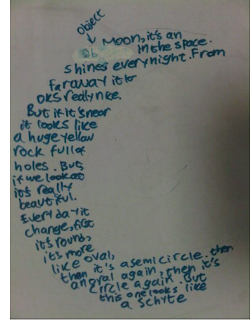 object
Oh Moon, it's an
in the space.
shines every night. From
far away it lo
oks really nice.
But if it's near
it looks like
a huge yellow
rock full of
holes. But,
if we look at
it's really
beautiful.
Every day it
change, first
it's round,
it's more
like oval,
then it's a semi circle. then
an oval again, then it's
circle again. But
this one looks like
a schyte